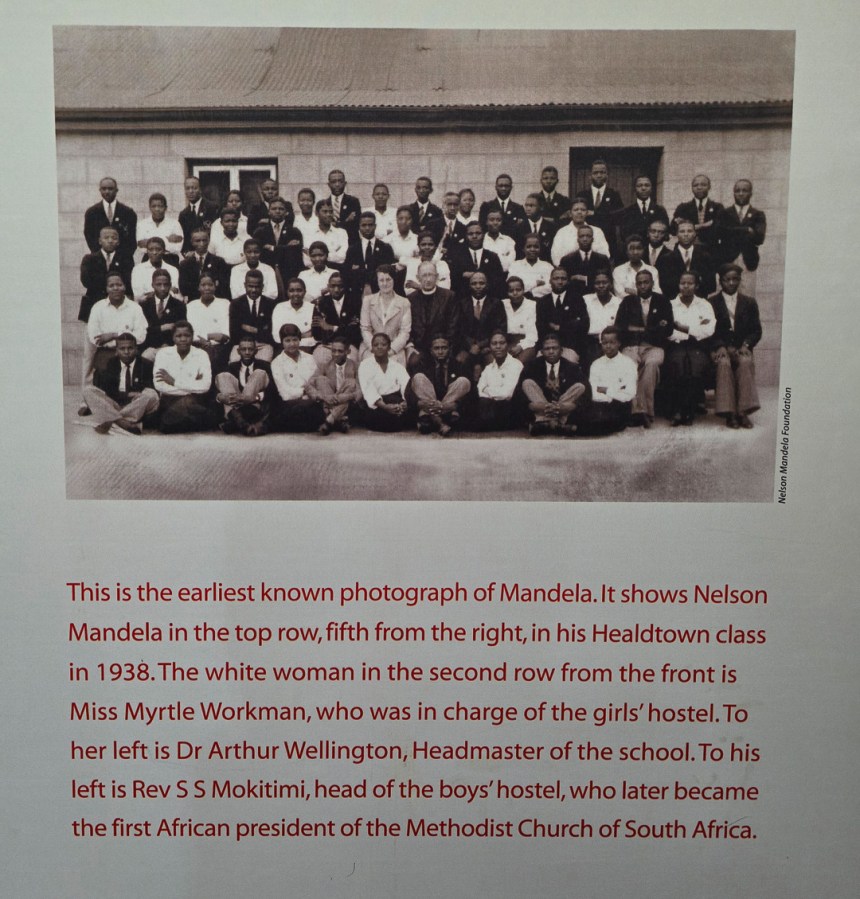 Nelson Mandela Foundation
This is the earliest known photograph of Mandela. It shows Nelson
Mandela in the top row, fifth from the right, in his Healdtown class
in 1938. The white woman in the second row from the front is
Miss Myrtle Workman, who was in charge of the girls’ hostel. To
her left is Dr Arthur Wellington, Headmaster of the school. To his
left is Rev S S Mokitimi, head of the boys’ hostel, who later became
the first African president of the Methodist Church of South Africa.